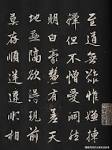 至道無難惟嫌揀
擇但不憎愛洞然
明白毫釐有差天
地懸隔欲得現前
莫存順逆違順相